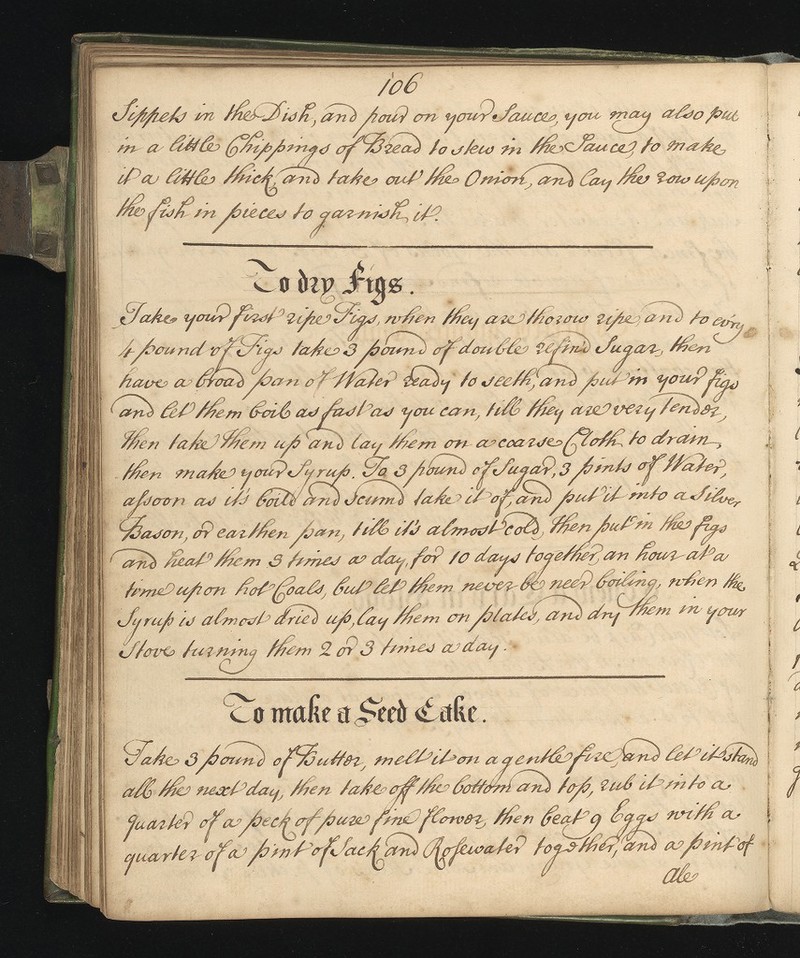 106
Sippets in the Dish, and pour on your Sauce, you may also put
in a little Chippings of Bread to stew in the Sauce, to make
it a little thick, and take out the Onion, and lay the row upon
the fish in pieces to garnish it.
To dry Figs.
Take your first ripe Figs, when they are thorow ripe, and to ev'ry
4 pound of Figs take 3 pound of double refin'd Sugar, then
have a broad pan of Water ready to seeth, and put in your figs
and let them boil as fast as you can, till they are very Tender,
then take them up and lay them on a coarse Cloth to drain,
then make your Syrup. To 3 pound of Sugar, 3 pints of Water,
assoon as it's boild and scumd take it of, and put it into a Silver
Bason, or earthen pan, till it's almost cold, then put in the figs
and heat them 3 times a day, for 10 days together, an hour at a
time upon hot Coals, but let them never be neer boiling, when the
Syrup is almost dried up, lay them on plates, and dry them in your
Stove turning them 2 or 3 times a day.
To make a Seed Cake.
Take 3 pound of Butter, melt it on a gentle fire, and let it stand
all the next day, then take off the bottom and top, rub it into a
quarter of a peck of pure fine flower, then beat 9 Eggs with a
quarter of a pint of Sack and Rosewater together, and a pint of
ale